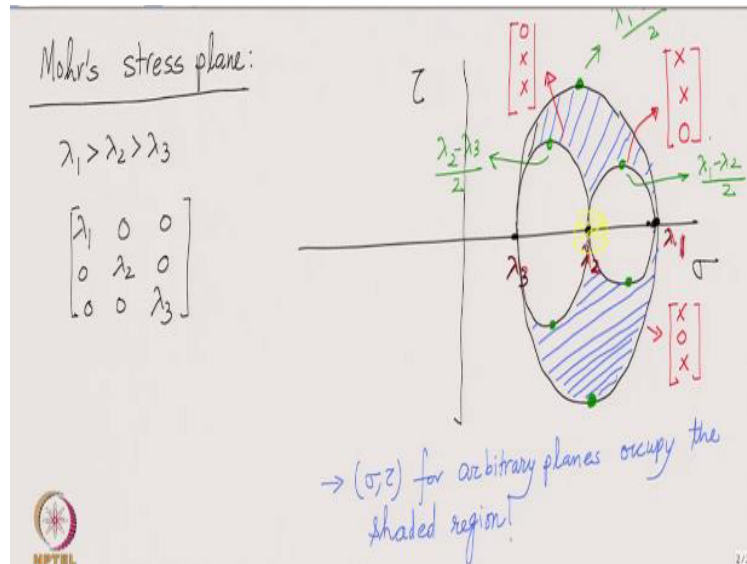 Mohr's stress plane:
λ1 > λ2 > λ3
[λ1 0 0
0 λ2 0
0 0 λ3]
τ
[0
x
x]
[x
x
0]
λ2-λ3
2
2
λ1-λ2
2
λ3
λ2
λ1
σ
[x
0
x]
→ (σ,τ) for arbitrary planes occupy the
shaded region!